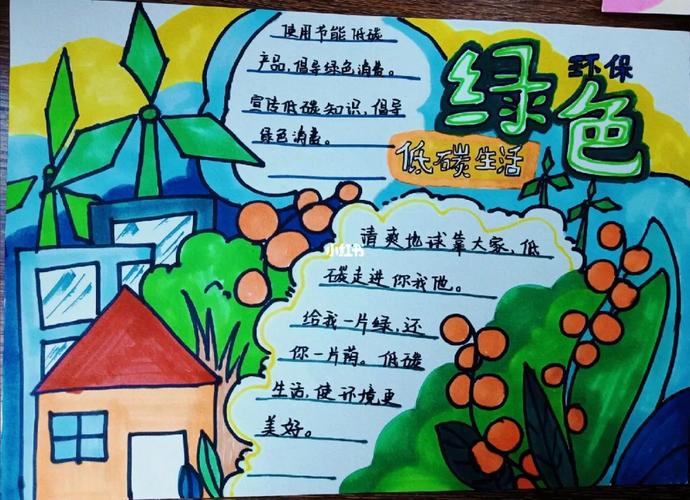 绿色
环保
低碳生活
使用节能低碳
产品,倡导绿色消费。
宣传低碳知识,倡导
绿色消费。
清爽地球靠大家,低
碳走进你我他。
给我一片绿,还
你一片荫。低碳
生活,使环境更
美好。
小红书